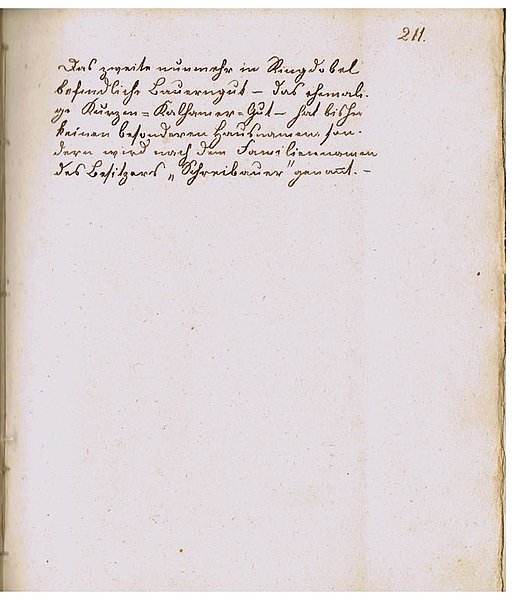 211.
Das zweite nunmehr in Ringdobel
befindliche Bauerngut – das ehemali-
ge Kurzen = Kalhamer-Gut – hat bisher
keinen besonderen Hausnamen, son-
dern wird nach dem Familiennamen
des Besitzers „Schreibauer" genannt. –